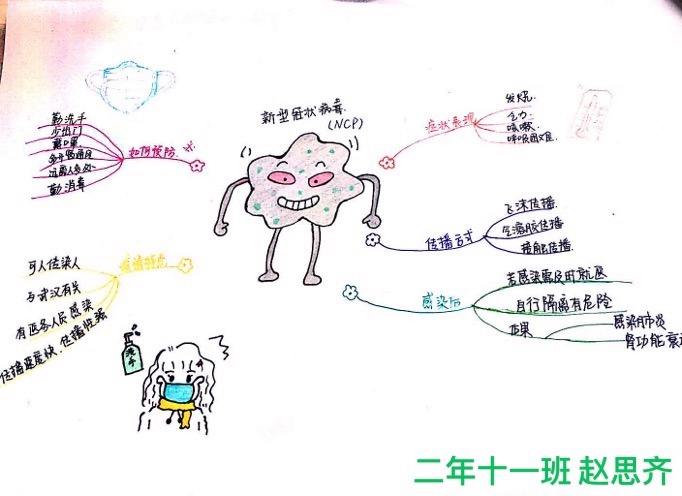 新型冠状病毒
(NCP)
如何预防
勤洗手
少出门
戴口罩
远离人多处
勤消毒
症状表现
发烧
乏力
咳嗽
呼吸困难
传播方式
飞沫传播
气溶胶传播
接触传播
疫情特点
可人传染人
与武汉有关
有医务人员感染
传播速度快,传播性强
感染后
若感染需及时就医
自行隔离有危险
后果
感染肺炎
肾功能衰
洗手
二年十一班 赵思齐